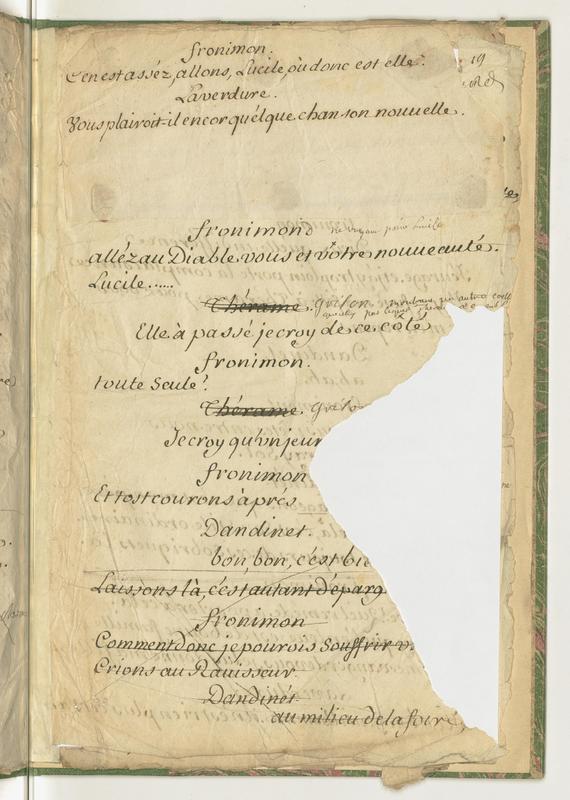 fronimon.
C'en est asséz, allons, Lucile où donc est elle?
19
Laverdure.
Vous plairoit-il encor quélque chanson nouvelle.
fronimond
alléz au Diable vous et vôtre nouveauté.
Lucile.....
Thérame.
Elle à passé je croy de ce coté
fronimon.
toute Seule?
Thérame.
Je croy qu'un jeun
fronimon
Et tost courons àprés
Dandinet.
bon, bon, c'est bie
Laissons là, c'est autant d'éparg
fronimon
Comment donc je pourois Souffrir v
Crions au Ravisseur
Dandinét.
au milieu de la foire